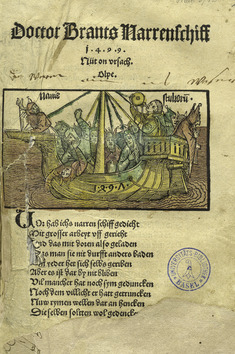 Doctor Brants Narrenschiff
1.4.9.9.
Nüt on vrsach.
Olpe.
Nauis stultorū.
1.4.9.4.
hab ichs narren schiff gedicht
Mit grosser arbeyt vff gericht
Vnd das mit doren also geladen
Das man sie nit durfft anders baden
Ein yeder het sich selbs geriben
Aber es ist dar by nit bliben
Vil mancher hat noch sym geduncken
Noch dem villicht er hatt getruncken
Nuw rymen wellen dar an hencken
Die selben soltten wol gedencken
BASEL